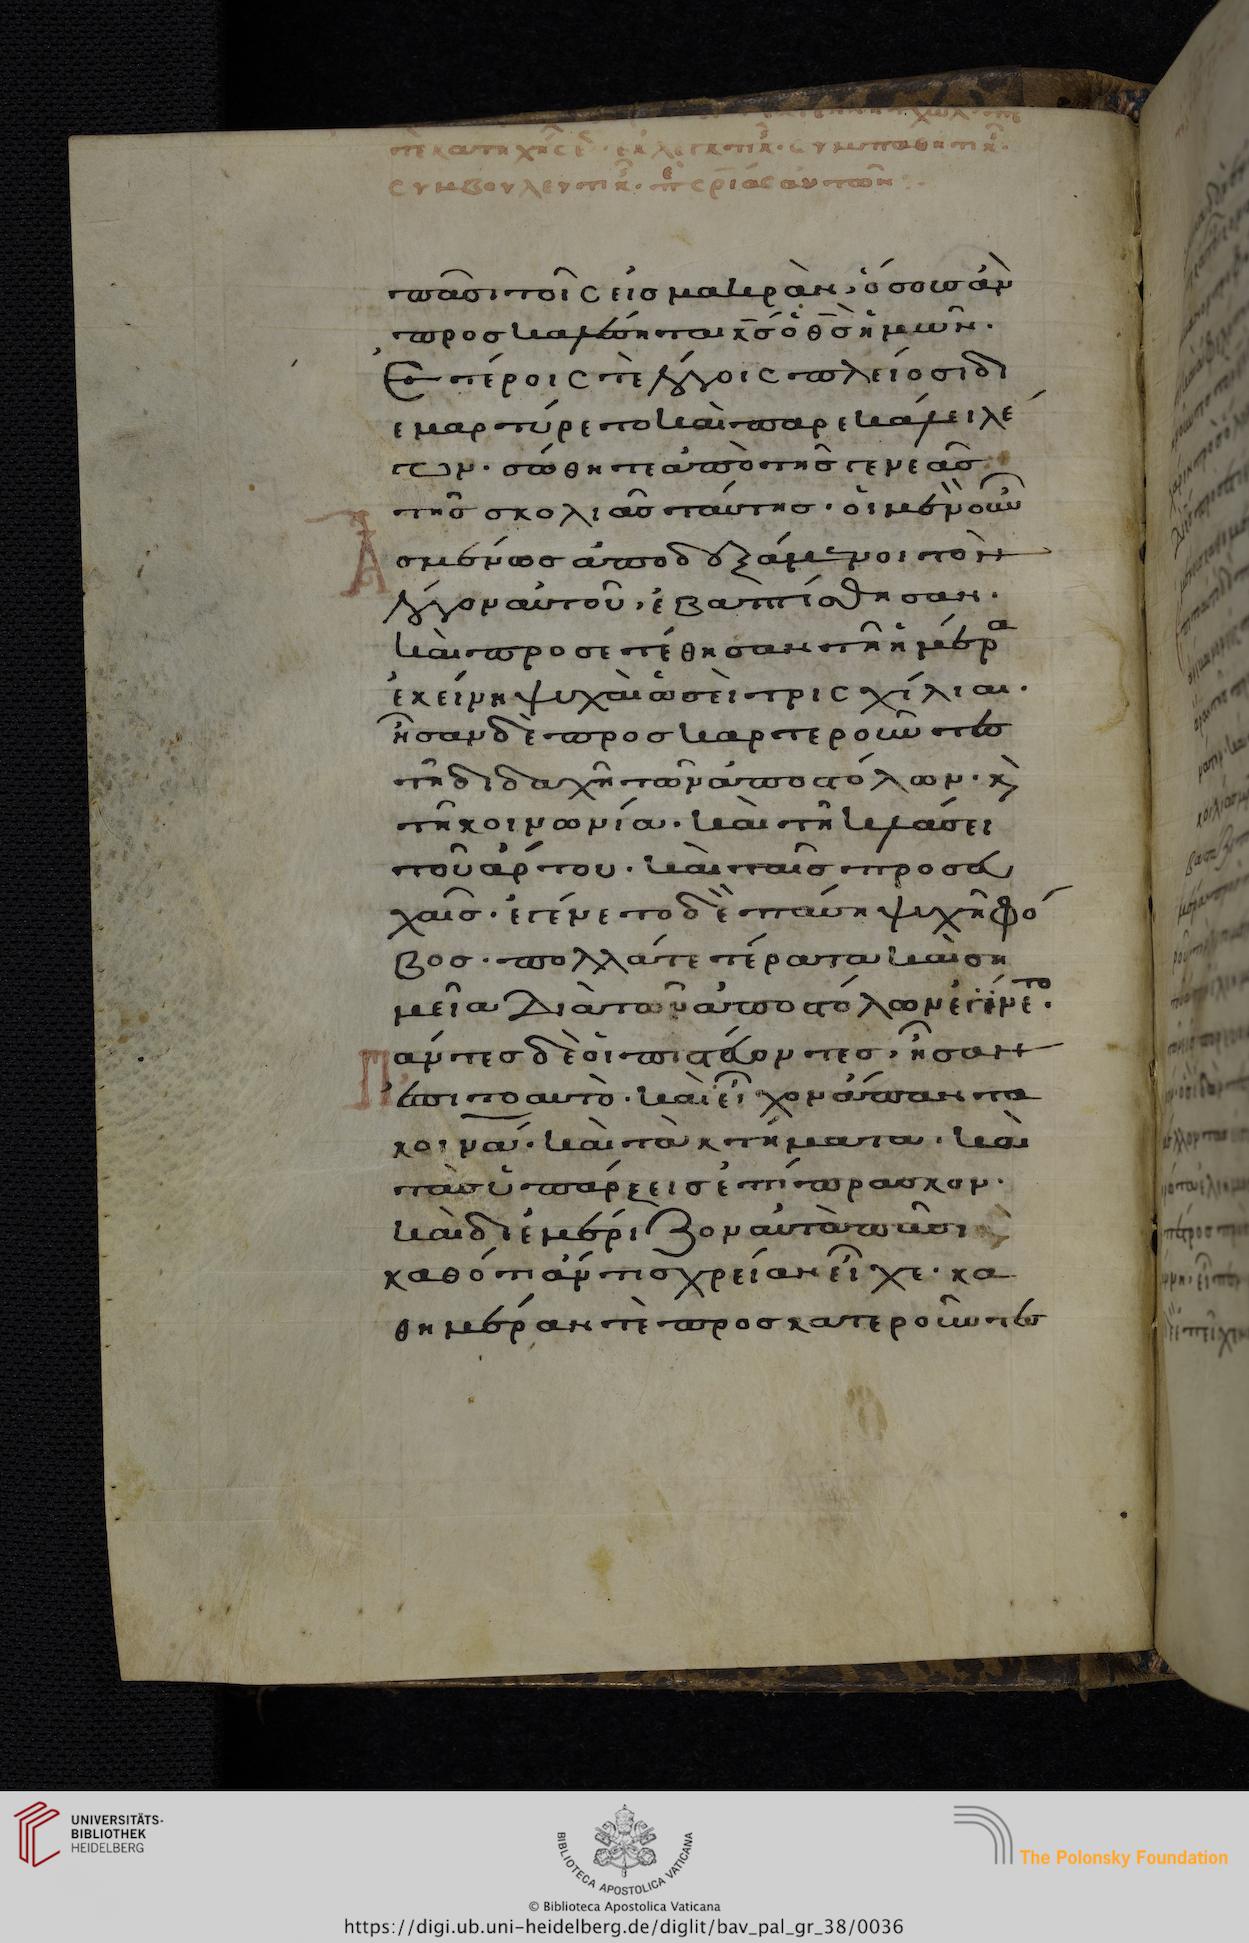 πᾶσι τοῖς εἰς μακρὰν, ὅσους ἂν
προσκαλέσηται κ̅ς̅ ὁ θ̅ς̅ ἡμῶν·
Ἑτέροις τὲ λόγοις πλείοσι δι
εμαρτύρετο καὶ παρεκάλει λέ
γων· σώθητε ἀπὸ τῆς γενεᾶς
τῆς σκολιᾶς ταύτης· οἱ μὲν οὖν
Ἀσμένως ἀποδεξάμενοι τὸν
λόγον αὐτοῦ, ἐβαπτίσθησαν·
καὶ προσετέθησαν τῆ ἡμέρα
ἐκείνη ψυχαὶ ὡσεὶ τρισχίλιαι·
ἦσαν δὲ προσκαρτεροῦντες
τῆ διδαχῆ τῶν ἀποστόλων· κὶ
τῆ κοινωνία· καὶ τῆ κλάσει
τοῦ ἄρτου· καὶ ταῖς προσευ
χαῖς· ἐγένετο δὲ πάση ψυχῆ φό
βος· πολλά τε τέρατα καὶ ση
μεῖα διὰ τῶν ἀποστόλων ἐγίνετο·
Πάντες δὲ οἱ πιστεύοντες, ἦσαν
ἐπιτοαυτὸ· καὶ εἶχον ἅπαντα
κοινά· καὶ τὰ κτήματα· καὶ
τὰς ὑπάρξεις ἐπίπρασκον·
καὶ διεμέριζον αὐτὰ πᾶσι
καθότι ἄν τις χρείαν εἶχε· κα
θημέραν τὲ προσκατεροῦντες
UNIVERSITÄTS-
BIBLIOTHEK
HEIDELBERG
BIBLIOTECA APOSTOLICA VATICANA
The Polonsky Foundation
© Biblioteca Apostolica Vaticana
https://digi.ub.uni-heidelberg.de/diglit/bav_pal_gr_38/0036